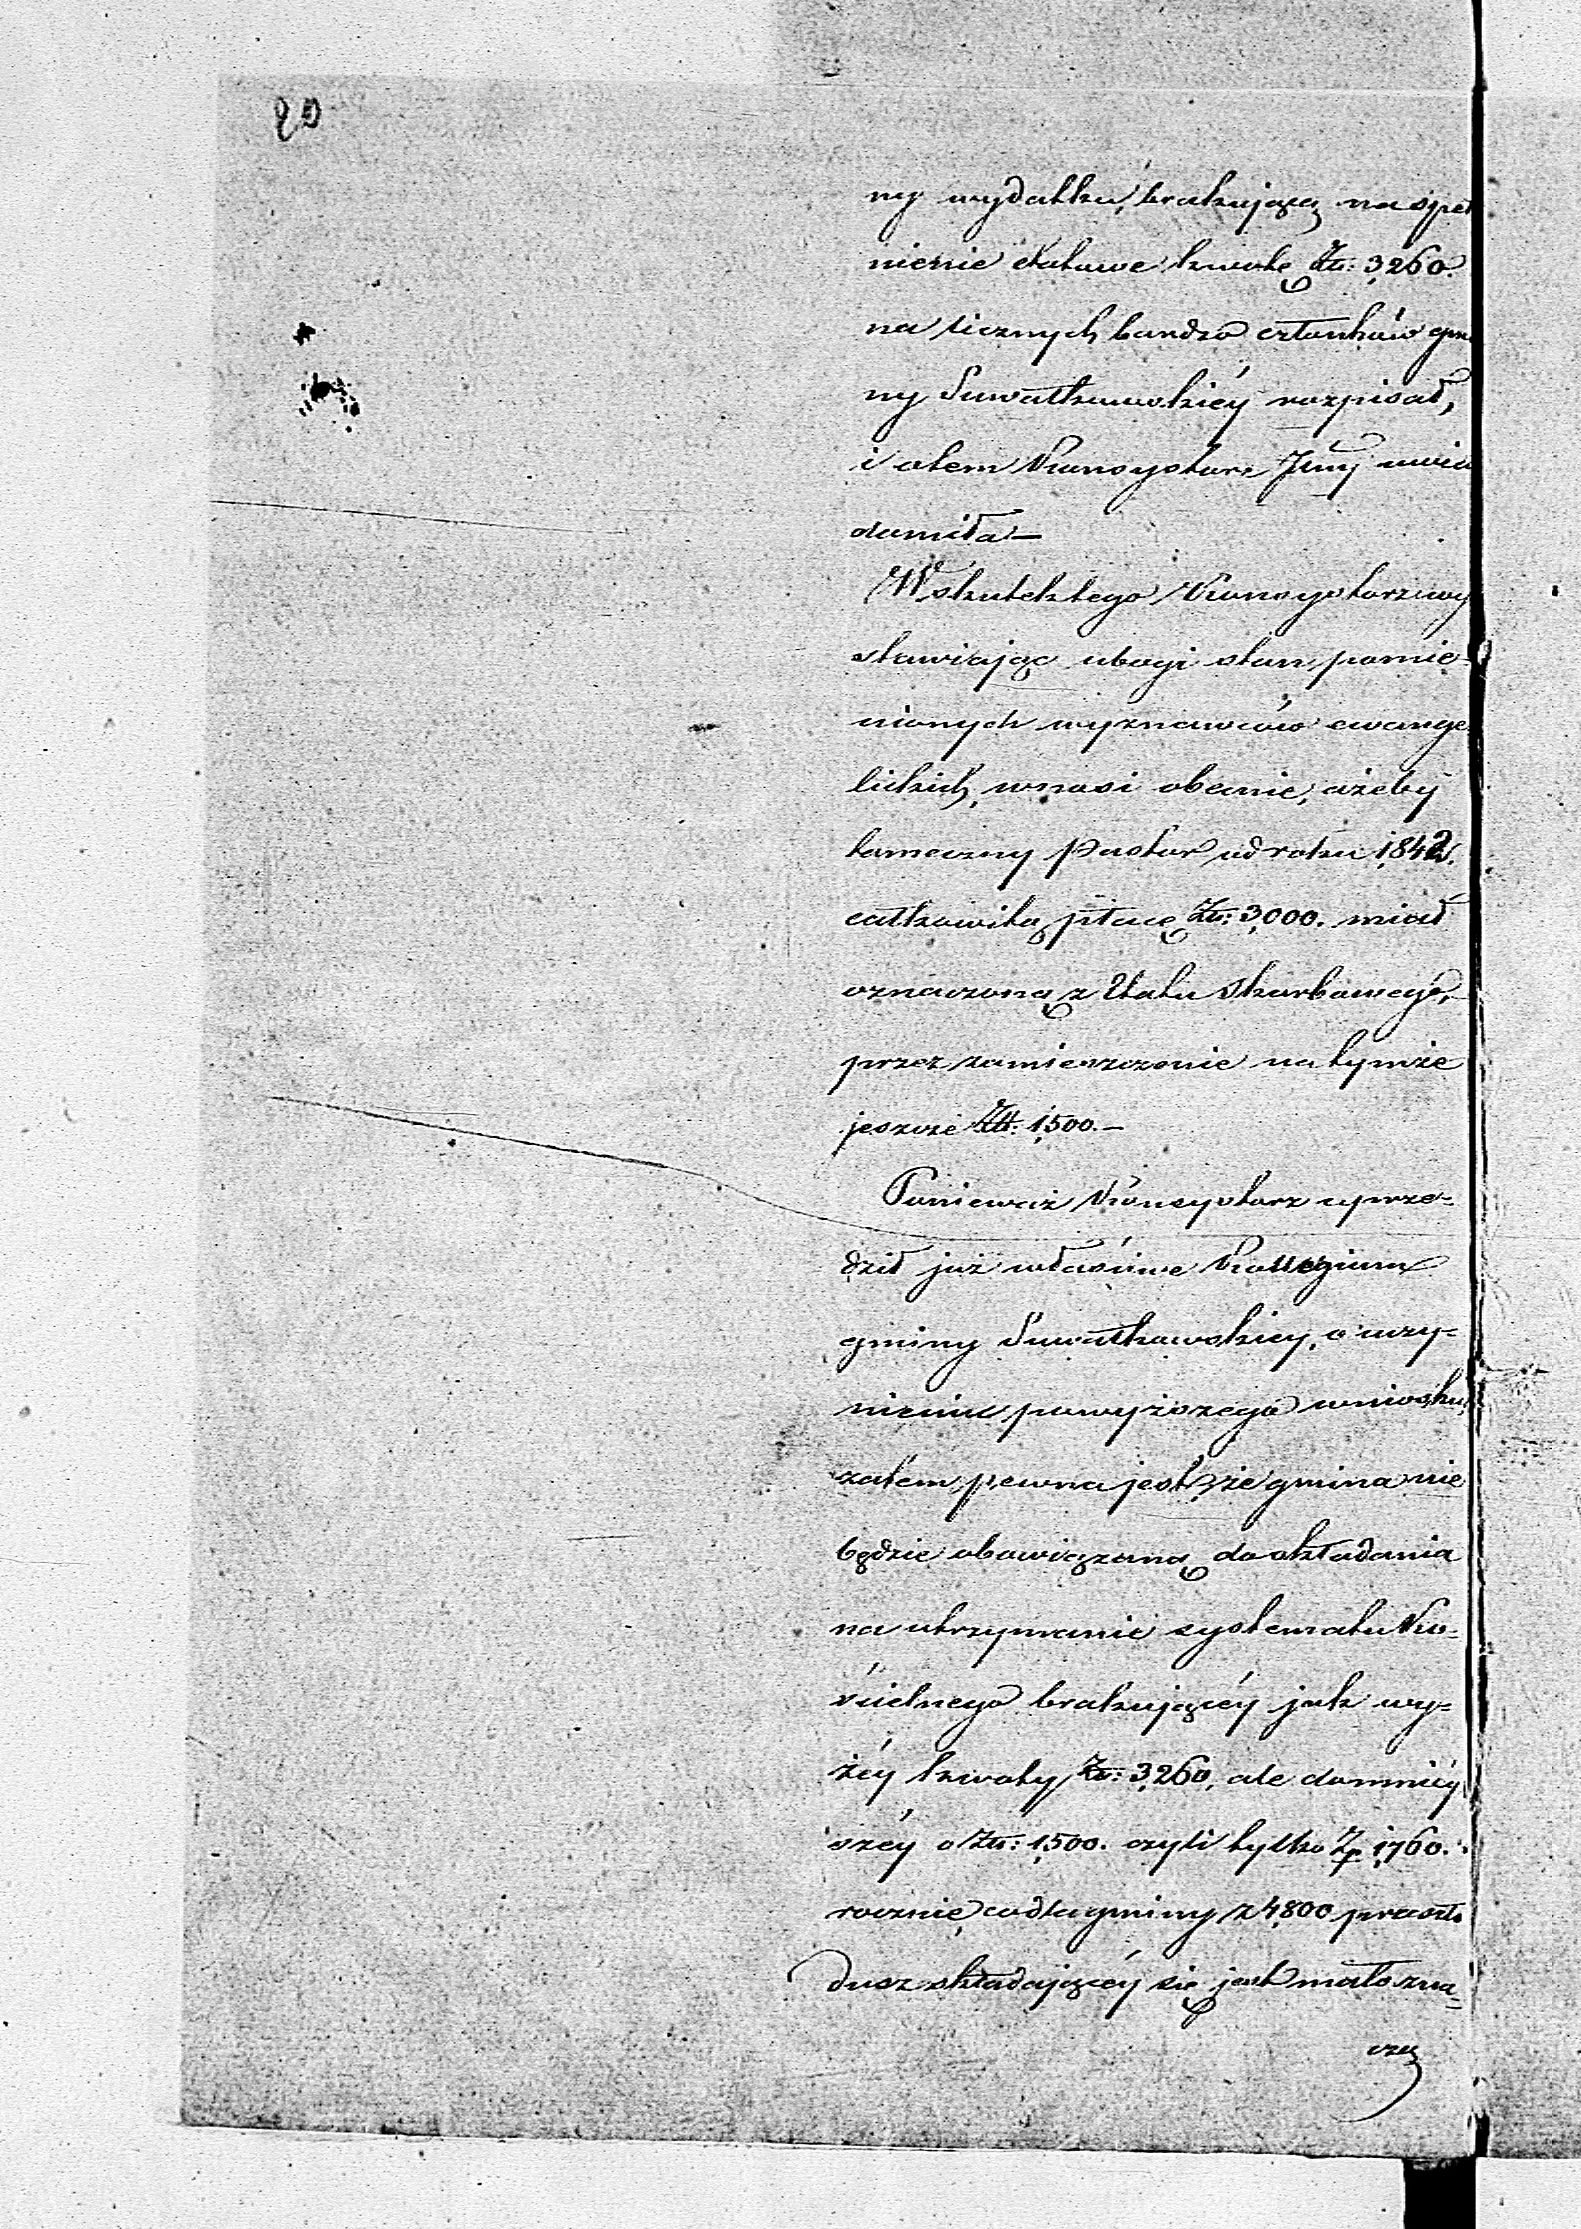 20
ny wydatku, brakującą na speł
nienie etatowe kwotę Złt: 3,260.
na licznych bardzo członków gmi
ny Suwałkowskiéy rozpisał,
i o tem Konsystorz Jlny uwia
domiła —
W skutek tego Konsystorz wy
stawiając ubogi stan pomie-
nionych wyznawców ewange
lickich, wnosi obecnie, ażeby
tameczny Pastor od roku 1842.
całkowitą płacę Złt: 3,000. miał
oznaczoną z Etatu Skarbowego,
przez zamieszczenie na tymże
jeszcze Złt. 1,500. —
Ponieważ Konsystorz uprze-
dził już właściwe Kollegium
gminy Suwałkowskiey, o uczy-
nieniu powyższego wniosku,
zatem pewna jest, że gmina nie
będzie obowiązaną do składania
na utrzymanie systematu Ko-
ścielnego brakującéy jak wy-
żéy kwoty Złt: 3,260, ale domniéy
széy o Złt: 1,500. czyli tylko Zp 1,760.
rocznie, co dla gminy z 4,800 przeszło
dusz składającéy się jest mało zna-
czą